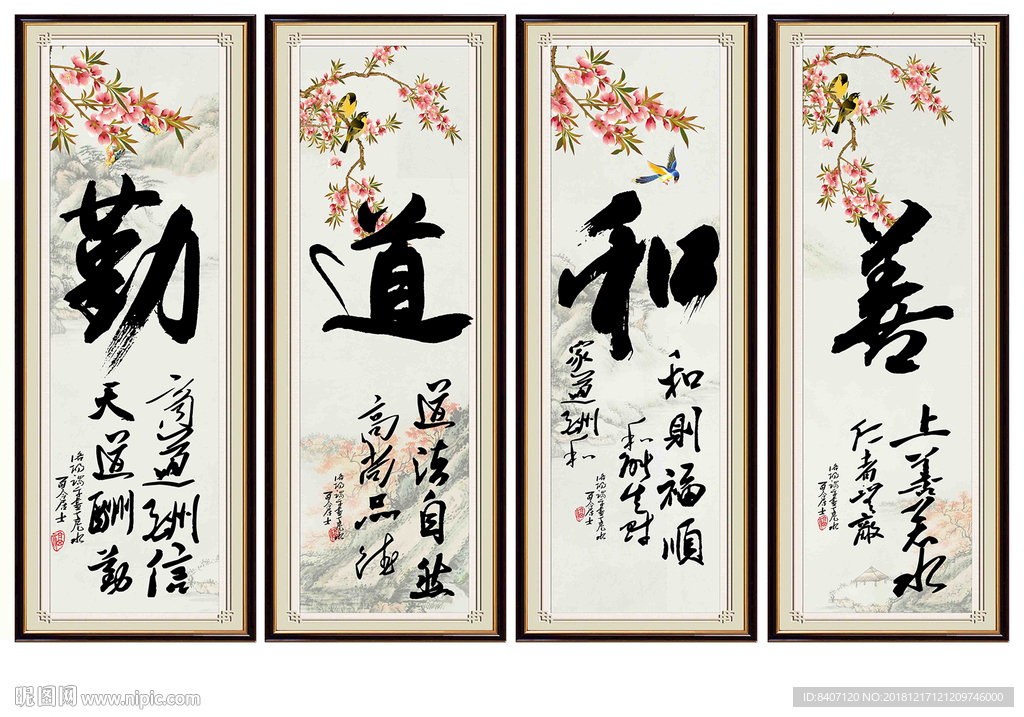 勤
商道酬信
天道酬勤
道
道法自然
高尚品德
和
和則福順
和能生財
家道酬和
善
上善若水
仁者無敵
昵图网 www.nipic.com
ID:8407120 NO:20181217121209746000